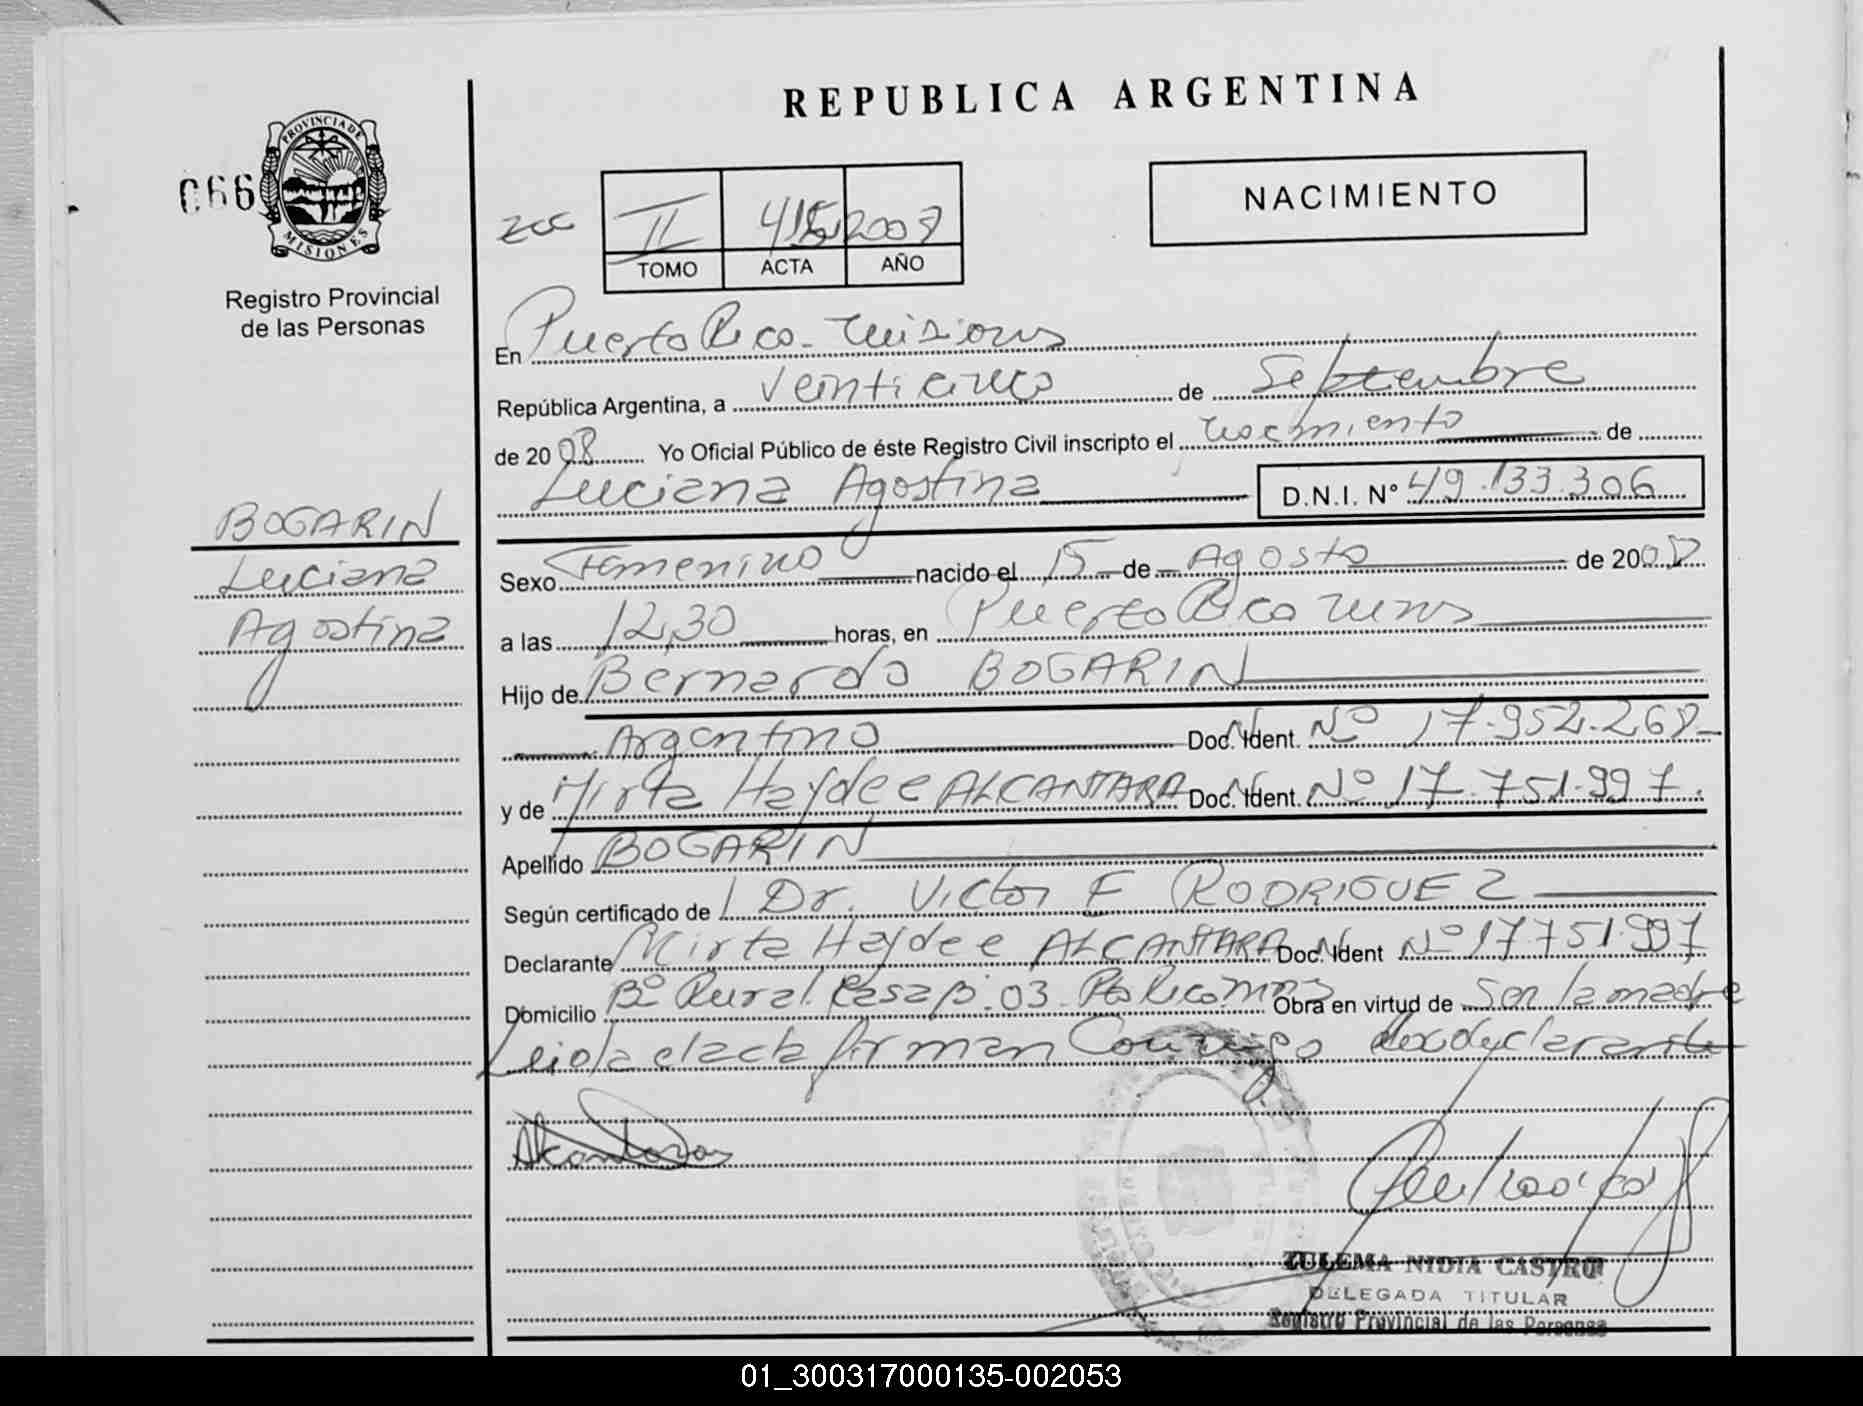 REPUBLICA ARGENTINA
066
PROVINCIA DE MISIONES
Registro Provincial
de las Personas
NACIMIENTO
II 2008
TOMO ACTA AÑO
En Puerto Rico - Misiones
República Argentina, a veinticinco de Septiembre
de 2008 Yo Oficial Público de éste Registro Civil inscripto el nacimiento de
Luciana Agostina D.N.I. N° 49.133.306
BOGARIN
Luciana
Agostina
Sexo Femenino nacido el 15 de Agosto de 2008
a las 12,30 horas, en Puerto Rico Mnes
Hijo de Bernardo BOGARIN
Argentino Doc. Ident. Nº 17.952.268
y de Mirta Haydee ALCANTARA Doc. Ident. Nº 17.751.997
Apellido BOGARIN
Según certificado de Dr. Victor E RODRIGUEZ
Declarante Mirta Haydee ALCANTARA Doc. Ident Nº 17751.997
Domicilio Bº Rural Casa 03 Pto Rico Mnes Obra en virtud de ser la madre
Leida el acta firman Conmigo declarante
ZULEMA NIDIA CASTRO
DELEGADA TITULAR
Registro Provincial de las Personas
01_300317000135-002053